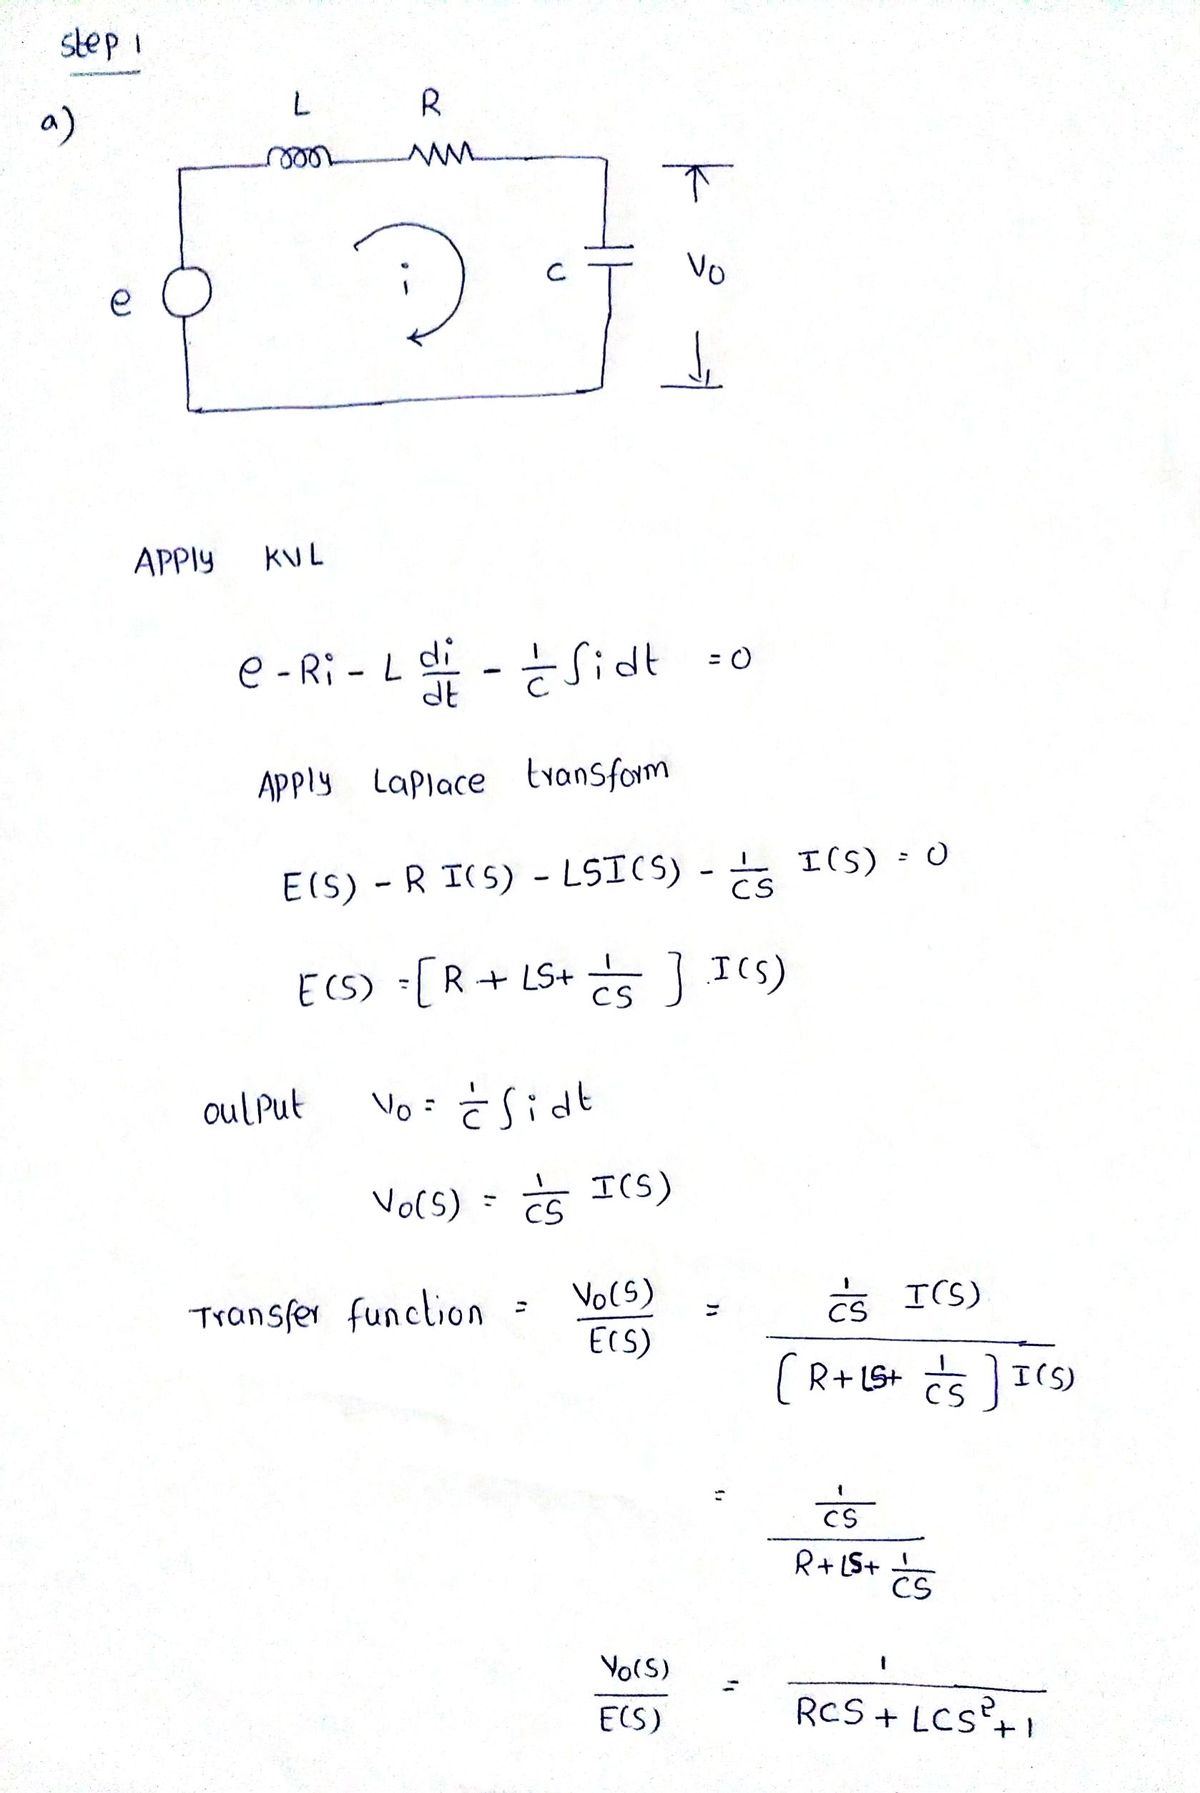 step 1
a)
L R
e i c Vo
APPly KVL
e - Ri - L di/dt - 1/C ∫i dt = 0
APPly LaPlace transform
E(S) - R I(S) - LSI(S) - 1/CS I(S) = 0
E(S) = [R + LS + 1/CS] I(S)
outPut Vo = 1/C ∫i dt
Vo(S) = 1/CS I(S)
Transfer function = Vo(S)/E(S) = 1/CS I(S) / [R + LS + 1/CS] I(S)
= 1/CS / R + LS + 1/CS
Vo(S)/E(S) = 1 / RCS + LCS² + 1